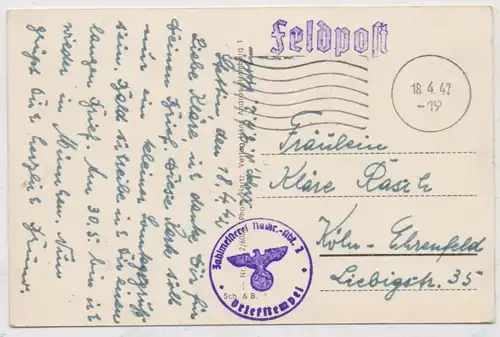 Westen den 18.4.42
Liebe Kläre, ich danke Dir für
Deinen Brief. Diese Karte soll
nur ein kleiner
sein. Bald schreibe ich Dir einen
langen Brief. Am 30.5. bin ich
wieder in München. Nun
grüßt Dich herzlich
Feldpost
18.4.42
-19
Fräulein
Kläre Rasch
Köln-Ehrenfeld
Liebigstr. 35
Zahlmeisterei Nachr.-Abt. 7
Briefstempel
Sch. & B.